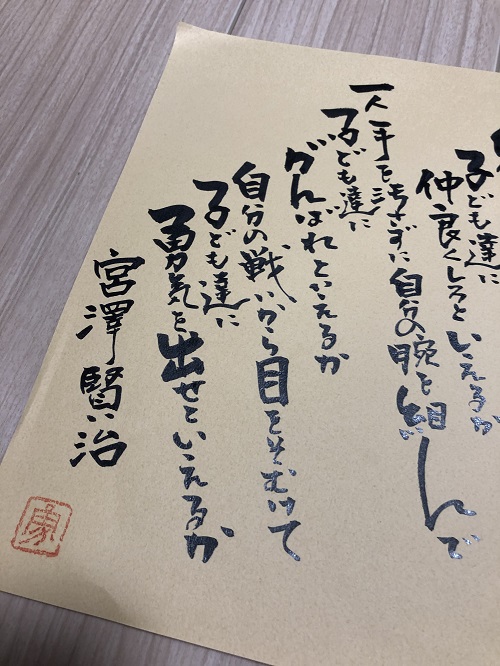 子ども達に
仲良くしろといえるか
一人手を汚さずに自分の腕を組んで
子ども達に
がんばれといえるか
自分の戦いから目をそむけて
子ども達に
勇気を出せといえるか
宮澤賢治